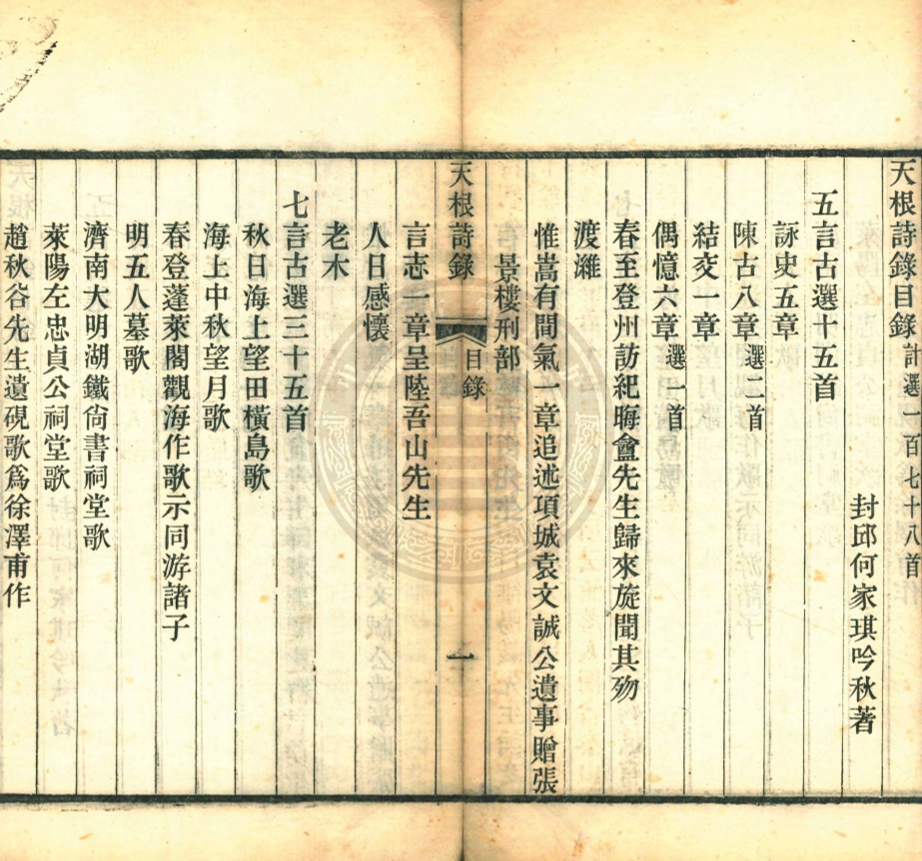 天根詩錄目錄計選一百七十八首
封邱何家琪吟秋著
五言古選十五首
詠史五章
陳古八章選二首
結交一章
偶憶六章選一首
春至登州訪紀晦盦先生歸來旋聞其歾
渡濰
惟嵩有間氣一章追述項城袁文誠公遺事贈張
景樓刑部
天根詩錄 目錄 一
言志一章呈陸吾山先生
人日感懷
老木
七言古選三十五首
秋日海上望田橫島歌
海上中秋望月歌
春登蓬萊閣觀海作歌示同游諸子
明五人墓歌
濟南大明湖鐵尙書祠堂歌
萊陽左忠貞公祠堂歌
趙秋谷先生遺硯歌爲徐澤甫作